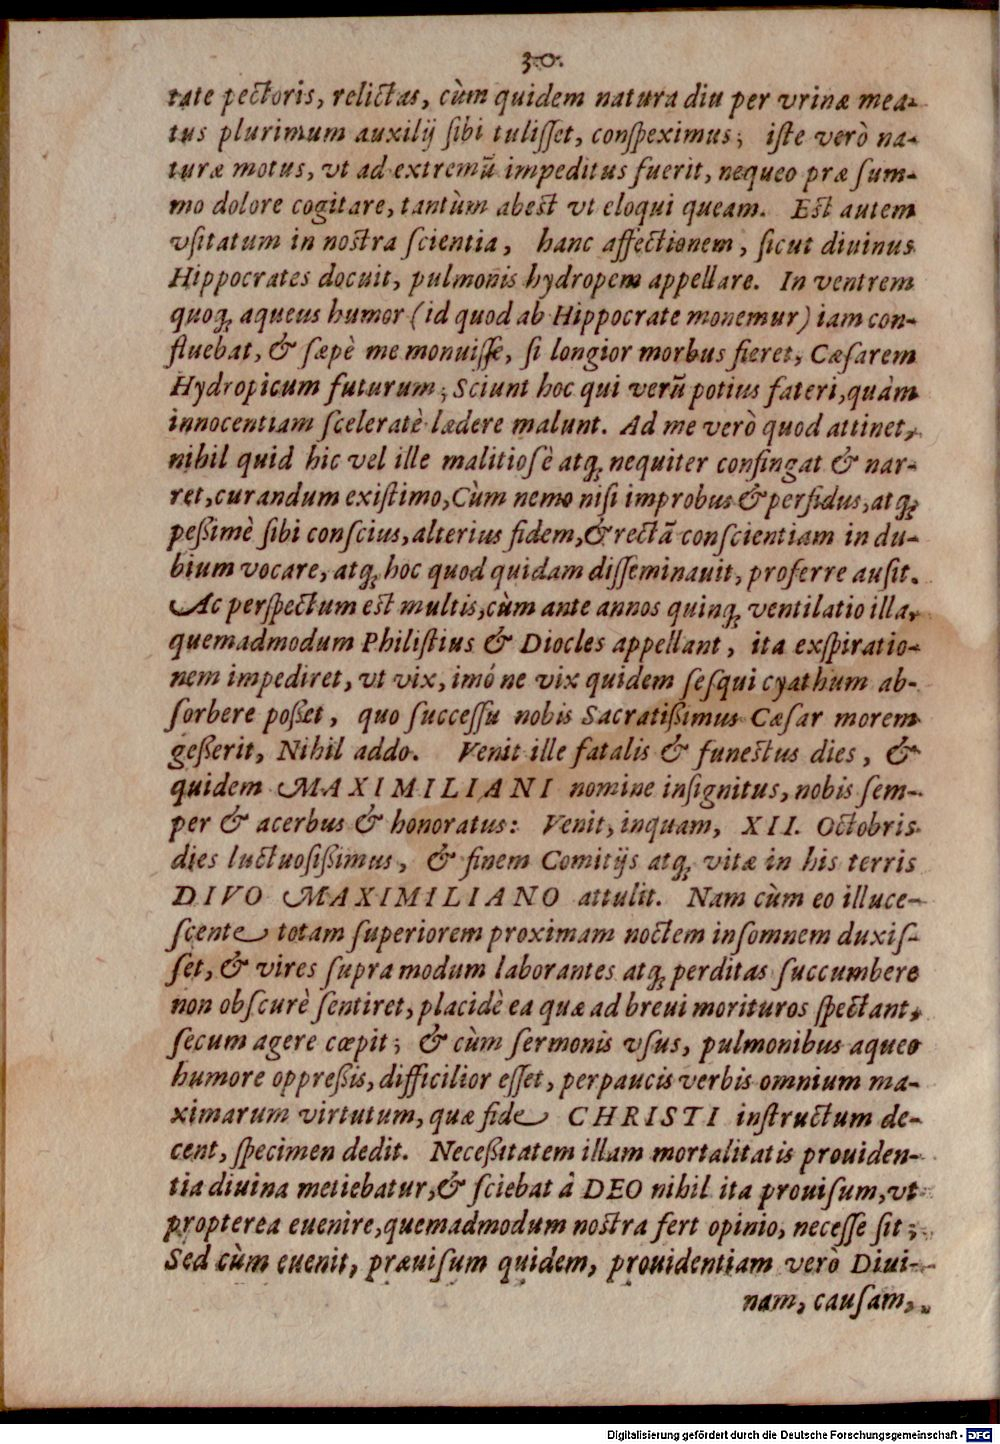 30.
tate pectoris, relictas, cùm quidem natura diu per vrinæ mea-
tus plurimum auxilij sibi tulisset, conspeximus; iste verò na-
turæ motus, vt ad extremũ impeditus fuerit, nequeo præ sum-
mo dolore cogitare, tantùm abest vt eloqui queam. Est autem
vsitatum in nostra scientia, hanc affectionem, sicut diuinus
Hippocrates docuit, pulmonis hydropem appellare. In ventrem
quoq; aqueus humor (id quod ab Hippocrate monemur) iam con-
fluebat, & sæpè me monuisse, si longior morbus fieret, Cæsarem
Hydropicum futurum; Sciunt hoc qui verũ potius fateri, quàm
innocentiam sceleratè lædere malunt. Ad me verò quod attinet,
nihil quid hic vel ille malitiosè atq; nequiter confingat & nar-
ret, curandum existimo, Cùm nemo nisi improbus & perfidus, atq;
peßimè sibi conscius, alterius fidem, & rectã conscientiam in du-
bium vocare, atq; hoc quod quidam disseminauit, proferre ausit.
Ac perspectum est multis, cùm ante annos quinq; ventilatio illa,
quemadmodum Philistius & Diocles appellant, ita exspiratio-
nem impediret, vt vix, imó ne vix quidem sesqui cyathum ab-
sorbere poßet, quo successu nobis Sacratißimus Cæsar morem
geßerit, Nihil addo. Venit ille fatalis & funestus dies, &
quidem MAXIMILIANI nomine insignitus, nobis sem-
per & acerbus & honoratus: Venit, inquam, XII. Octobris
dies luctuosißimus, & finem Comitijs atq; vitæ in his terris
DIVO MAXIMILIANO attulit. Nam cùm eo illuce-
scente totam superiorem proximam noctem insomnem duxis-
set, & vires supra modum laborantes atq; perditas succumbere
non obscurè sentiret, placidè ea quæ ad breui morituros spectant,
secum agere cœpit; & cùm sermonis vsus, pulmonibus aqueo
humore oppreßis, difficilior esset, perpaucis verbis omnium ma-
ximarum virtutum, quæ fide CHRISTI instructum de-
cent, specimen dedit. Neceßitatem illam mortalitatis prouiden-
tia diuina metiebatur, & sciebat à DEO nihil ita prouisum, vt
propterea euenire, quemadmodum nostra fert opinio, necesse sit;
Sed cùm euenit, præuisum quidem, prouidentiam verò Diui-
nam, causam,
Digitalisierung gefördert durch die Deutsche Forschungsgemeinschaft - DFG